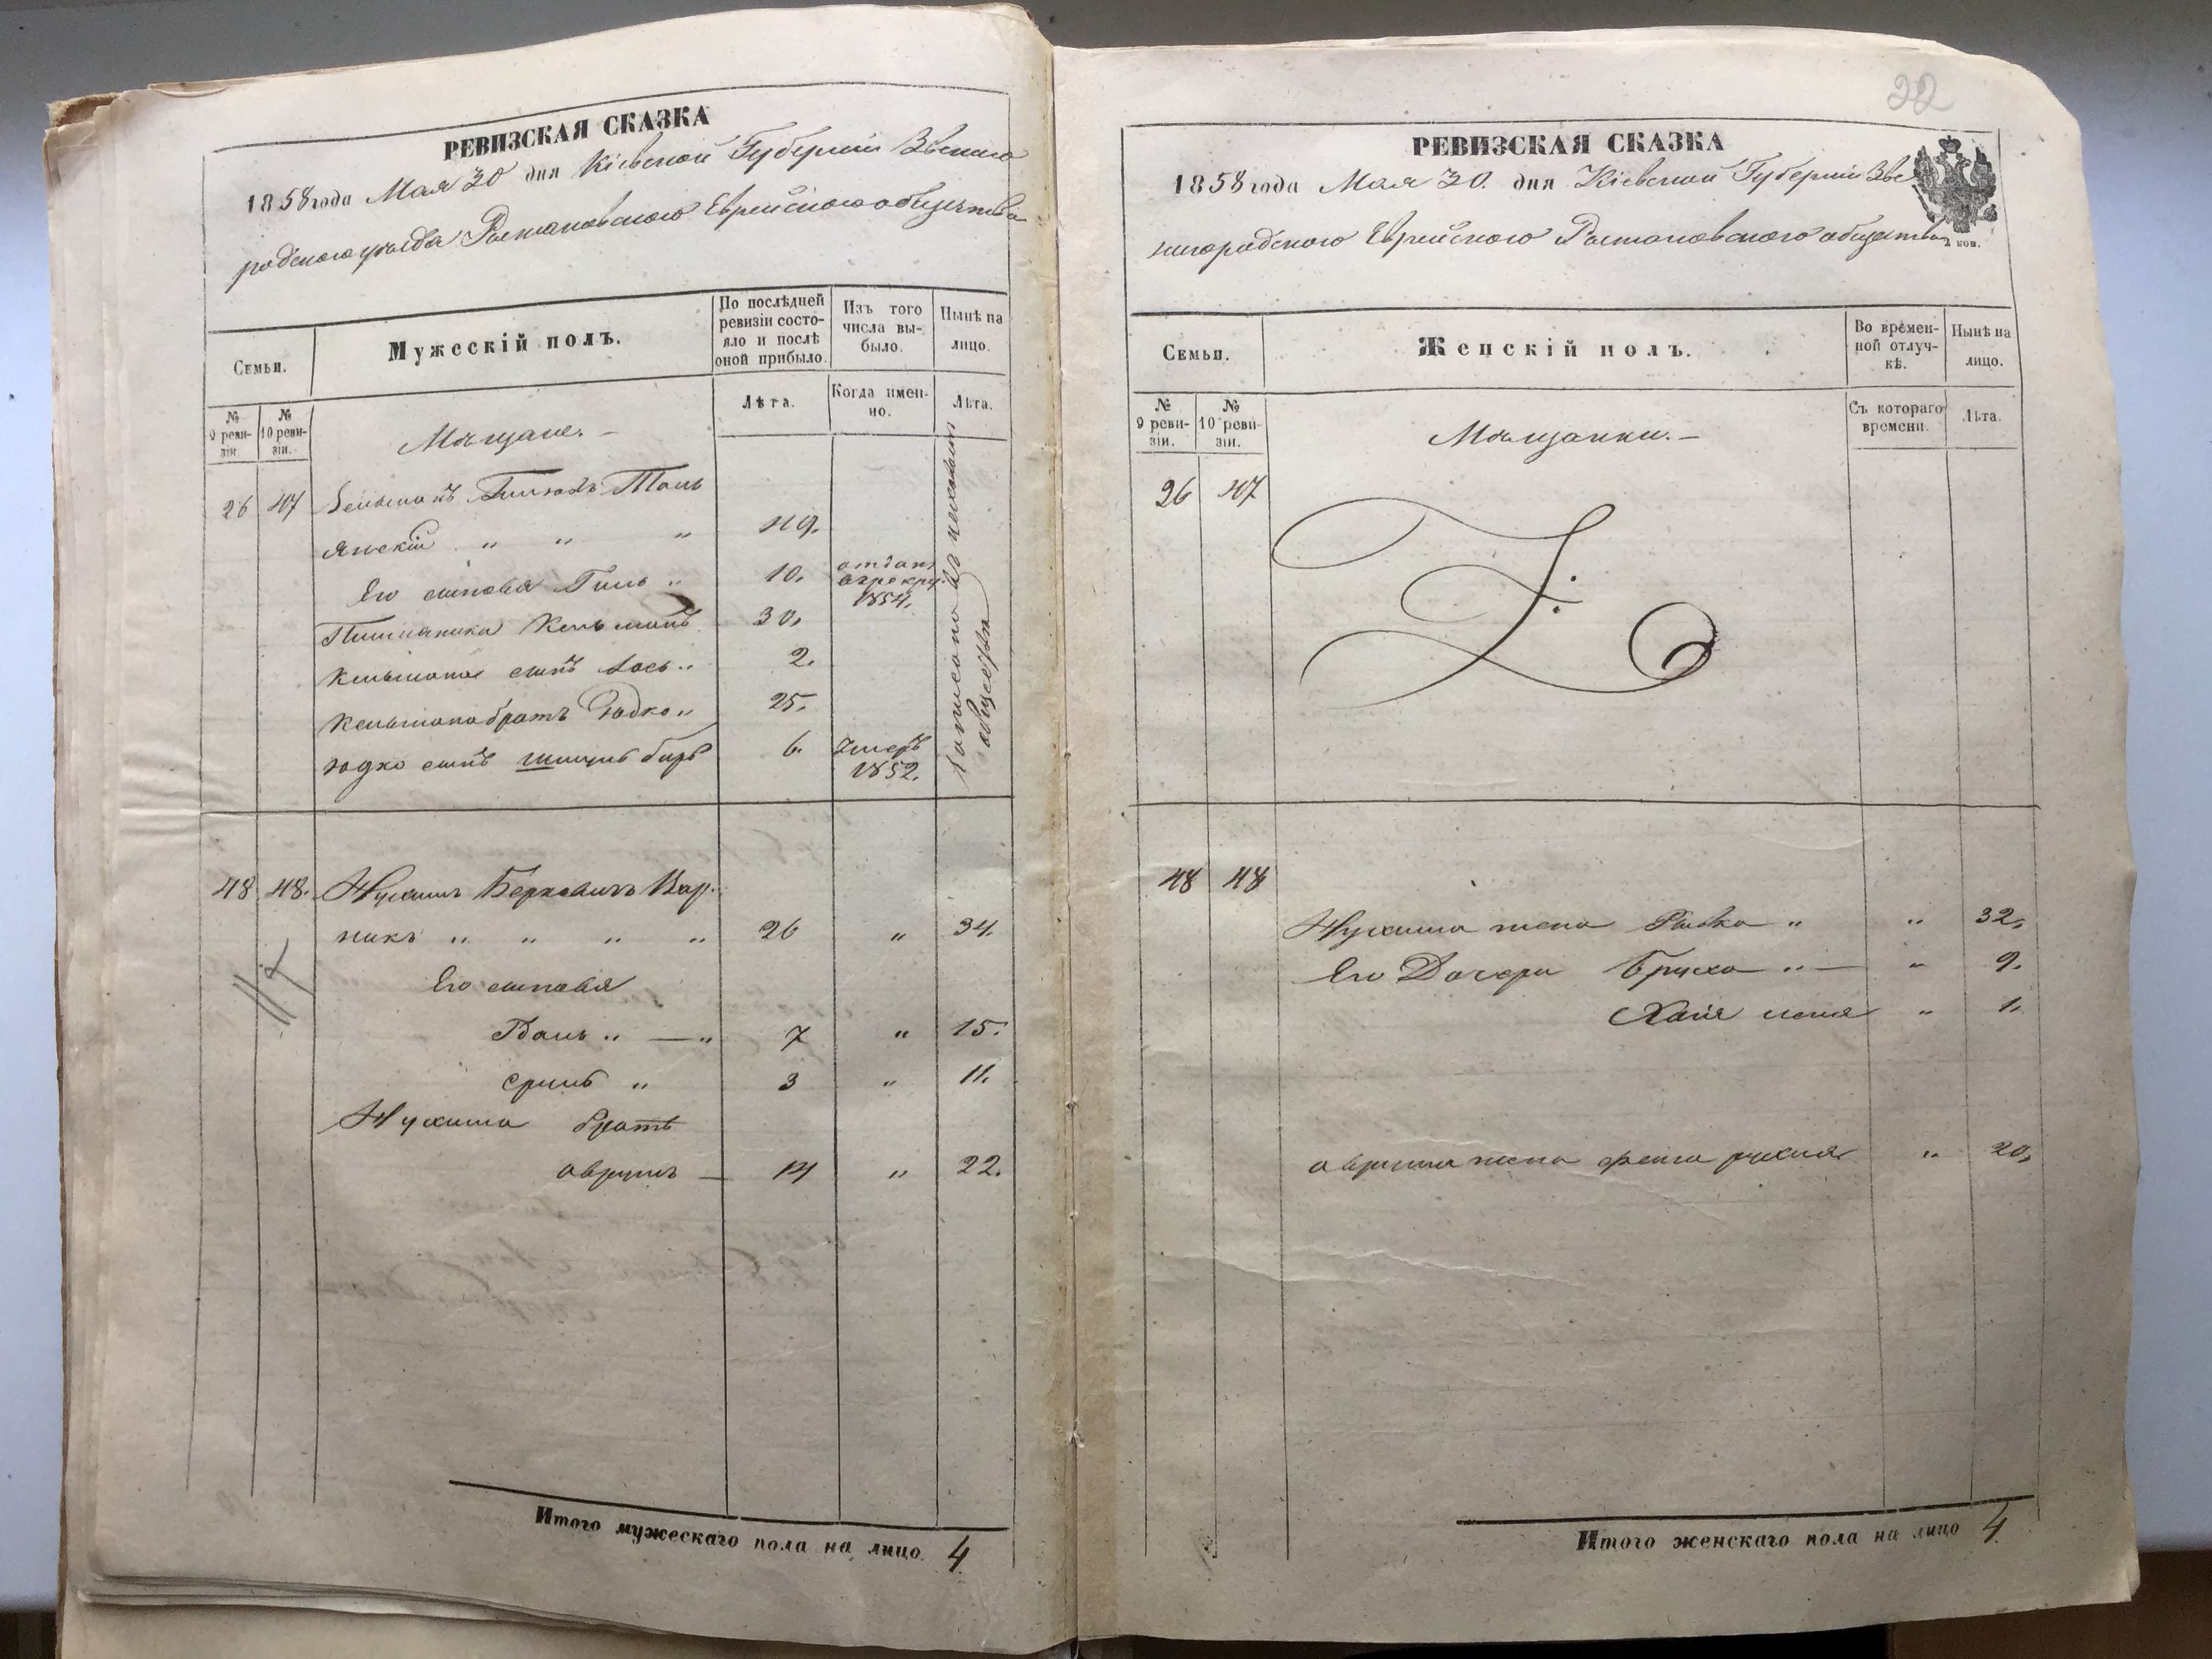 РЕВИЗСКАЯ СКАЗКА
1858 года Мая 30 дня Кіевской Губерніи Звениго
родского уѣзда Еврейского общества
Семьи.
Мужескій полъ.
По послѣдней ревизіи состояло и послѣ оной прибыло.
Изъ того числа выбыло.
Нынѣ на лицо.
№ 9 ревизіи
№ 10 ревизіи.
Лѣта.
Когда именно.
Лѣта.
Мѣщане.
26 47
49.
Его сыновья 10. отданъ
1854.
Кельманъ 30.
Кельмана сынъ 2.
Кельмана братъ Юдко 25.
Юдко сынъ 6. Умеръ
1852.
обществу
48 48. Нухимъ Берковичъ Вар
никъ 26 " 34.
Его сыновья
7 " 15.
Сруль 3 " 11.
Нухима братъ
Аврумъ 14 " 22.
Итого мужескаго пола на лицо 4
22
РЕВИЗСКАЯ СКАЗКА
1858 года Мая 30. дня Кіевской Губерніи Зве
нигородского Еврейского общества
коп.
Семьи.
Женскій полъ.
Во временной отлучкѣ.
Нынѣ на лицо.
№ 9 ревизіи.
№ 10 ревизіи.
Съ котораго времени.
Лѣта.
Мѣщанки.
26 47
48 48
Нухима жена Ривка " " 32.
Его Дочери Бруха " " 9.
Хаия " 1.
Аврума жена рухля " 20.
Итого женскаго пола на лицо 4.